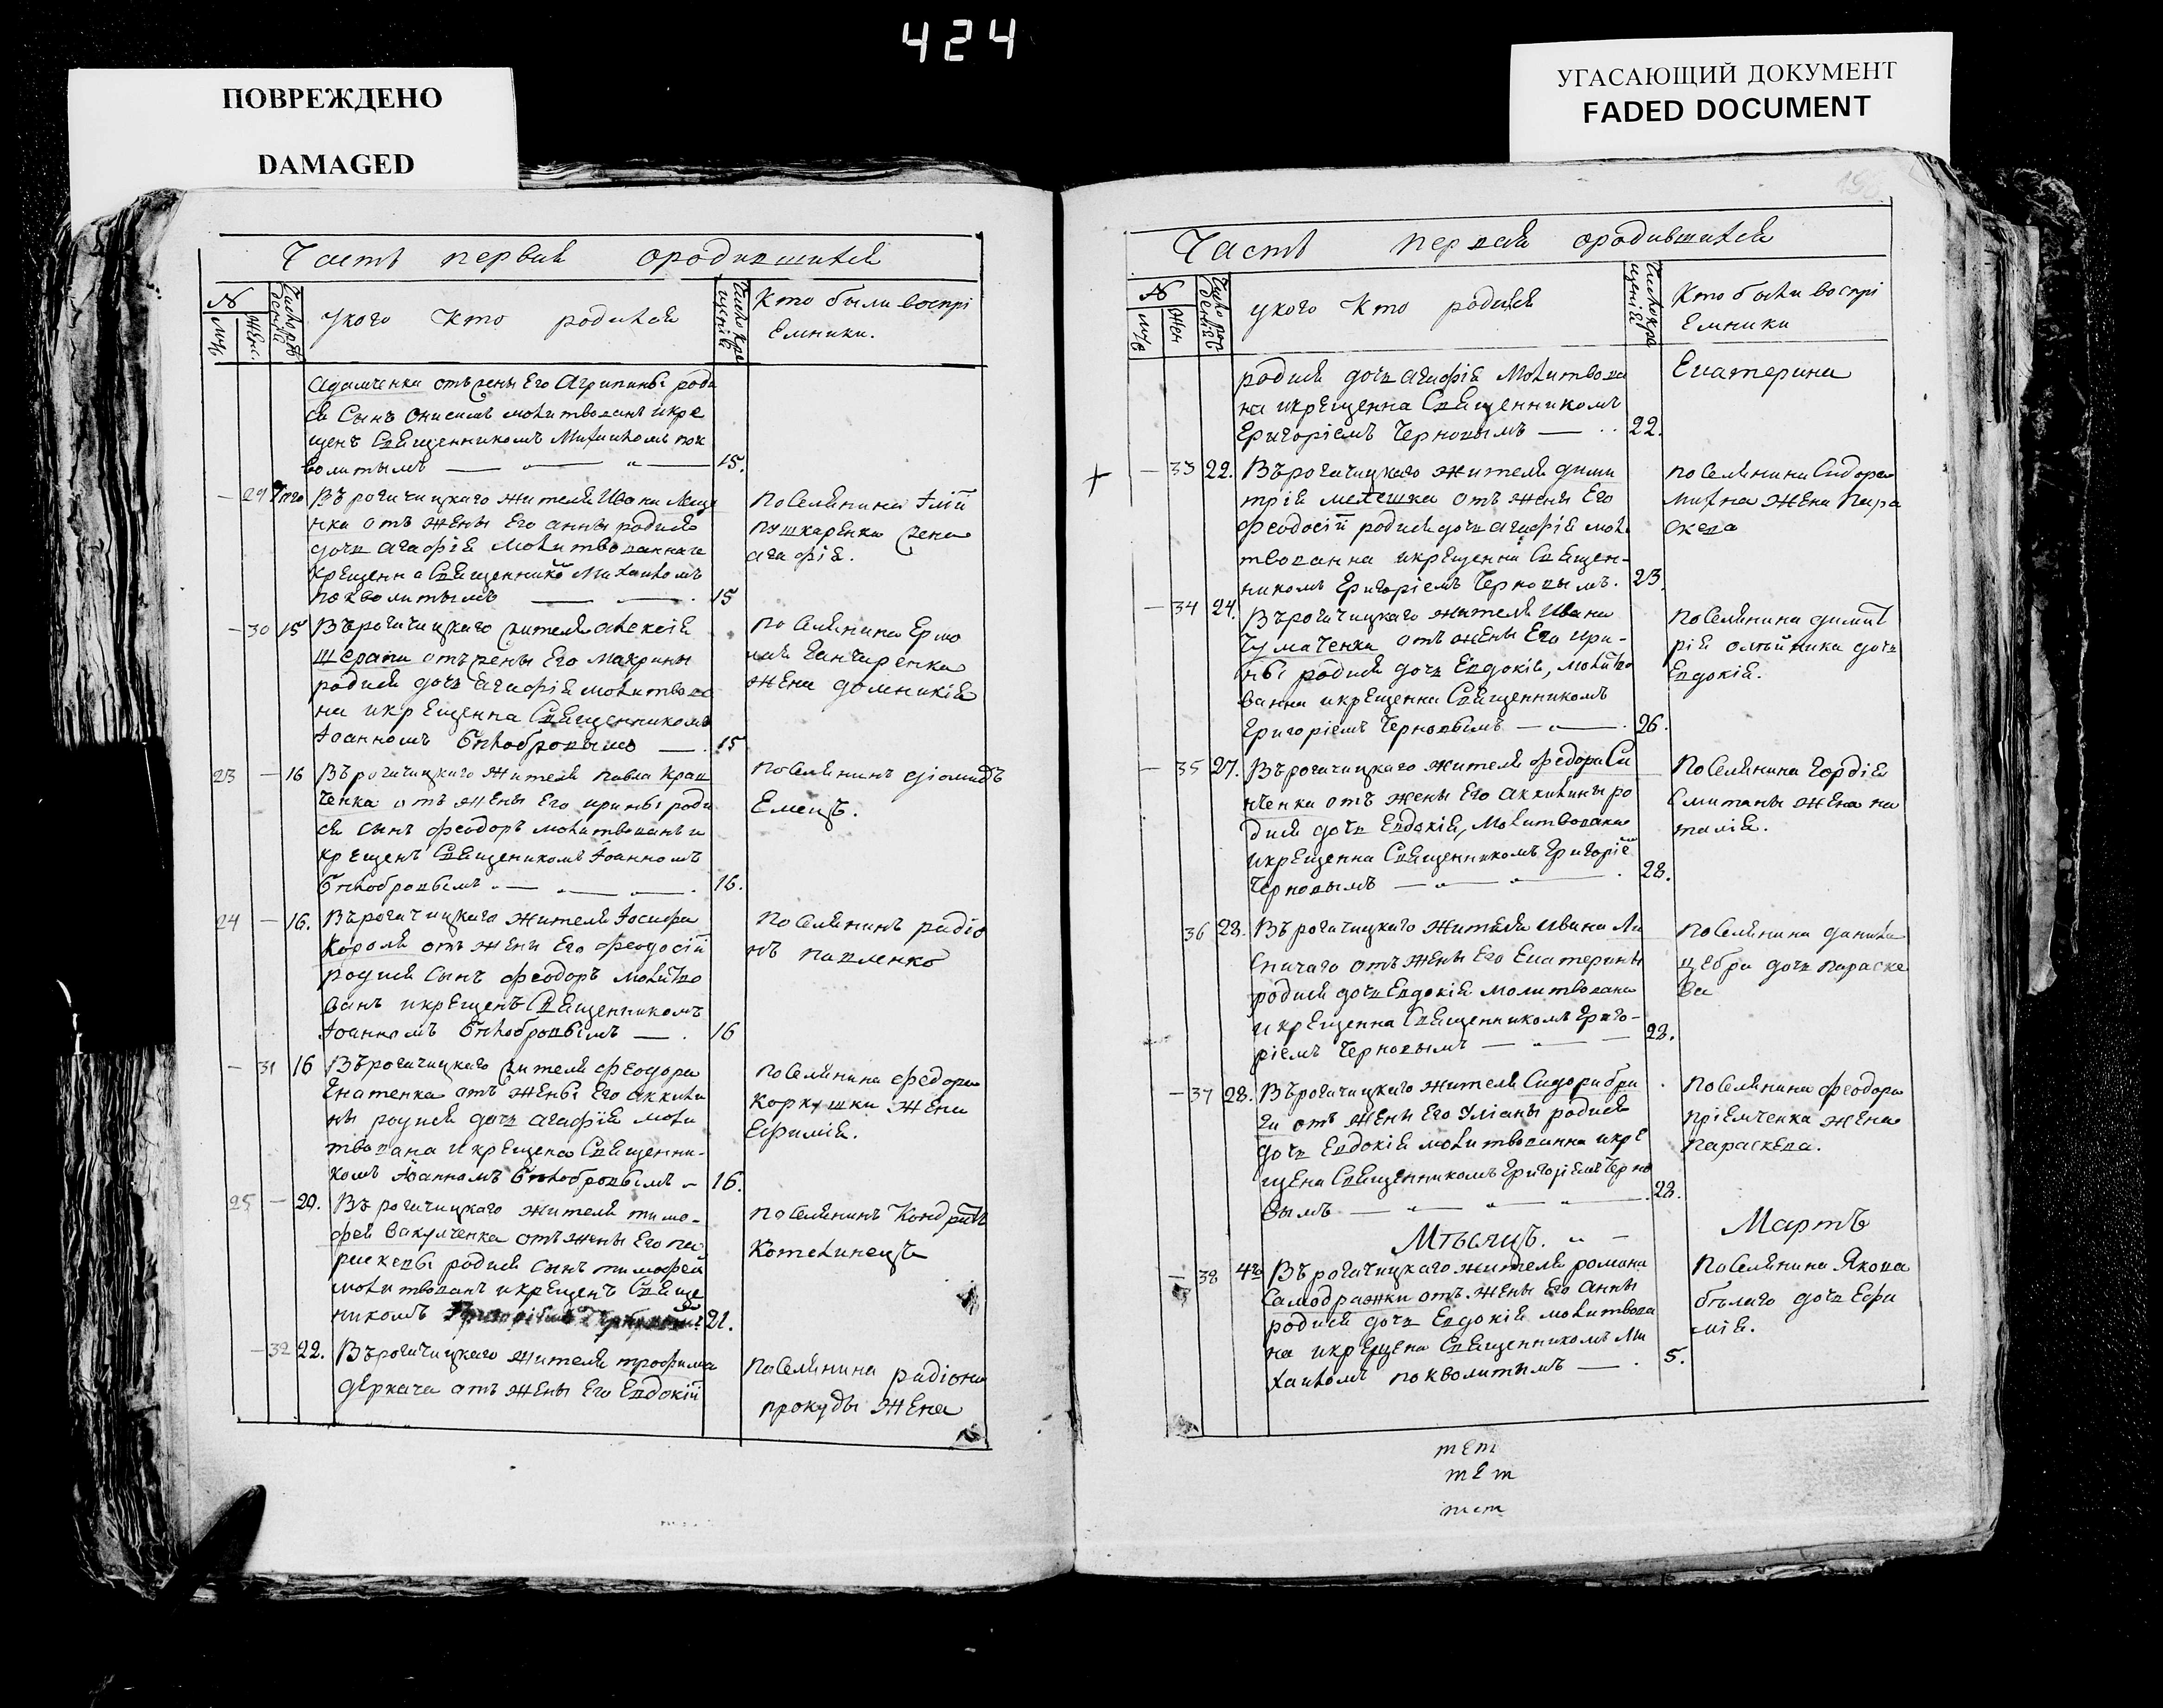 424
ПОВРЕЖДЕНО
DAMAGED
УГАСАЮЩИЙ ДОКУМЕНТ
FADED DOCUMENT
Часть первая ородившихся
№ Число рождения у кого кто родился Число крещенія Кто были воспрі
муж. жен. емники.
Адамченка отъ жены Его Агрипины роди
ся Сынъ Онисимъ молитвованъ и кре
щенъ Священникомъ Михаиломъ пок
волитымъ — " — " — 15.
— 29 Въ рогачицкаго жителя Ивана
нка отъ жены Его анны родися
дочь агафія молитвованна и
крещенна Священнико Михаиломъ
покволитымъ — — . 15
поселянина
пушкаренка жена
агафія.
— 30 15 Въ рогачицкаго жителя алексія
шерапи отъ жены Его Макрины
родися дочь агафія молитвова
на и крещенна Священникомъ
Іоанномъ Бѣлобровымъ — . 15
поселянина Ермо
лая Ганчаренка
жена домникія
23 — 16 Въ рогачицкаго жителя павла крав
ченка отъ жены Его ирины роди
ся сынъ феодоръ молитвованъ и
крещенъ Священикомъ Іоанномъ
Бѣлобровымъ . — " — " — . 16.
поселянинъ діомидъ
Емецъ.
24 — 16. Въ рогачицкаго жителя Іосифа
Короля отъ жены Его феодосіи
родися сынъ феодоръ молитво
ванъ и крещенъ Священникомъ
Іоанномъ Бѣлобровымъ — . 16
поселянинъ радіо
нъ павленко
— 31 16 Въ рогачицкаго жителя феодора
Гнатенка отъ жены Его аккили
ны родися дочь агафія моли
твована и крещена Священни-
комъ Іоанномъ Бѣлобровымъ - 16.
поселянина федора
Коркушки жена
Ефимія.
25 — 20. Въ рогачицкаго жителя тимо-
фея вакуленка отъ жены Его па
раскевы родися сынъ тимофей
молитвованъ и крещенъ Священ
никомъ 21.
поселянинъ Кондратъ
Котелинецъ
— 32 22. Въ рогачицкаго жителя трофима
деркача отъ жены Его Евдокіи
поселянина радіона
прокуды жена
Часть первая ородившихся
№ Число рождения у кого кто родися Число крещенія Кто были воспрі
муж жен емники
родися дочь агафія Молитвова
на и крещенна Священникомъ
Григоріемъ Черновымъ — .. 22.
Екатерина
+ — 33 22. Въ рогачицкаго жителя дими
трія мелешка отъ жены Его
феодосіи родися дочь агафія моли
твованна и крещенна Священ-
никомъ Григоріемъ Черновымъ. 23.
поселянина Сидора
михна жена Пара
скева
— 34 24. Въ рогачицкаго жителя Ивана
Чумаченка отъ жены Его ири-
ны родися дочь Евдокія, молитво
ванна и крещенна Священникомъ
Григоріемъ Черновымъ — " — . 26.
поселянина димит
рія олейника дочь
Евдокія.
— 35 27. Въ рогачицкаго жителя федора Си
нченка отъ жены Его аккилины ро
дися дочь Евдокія, Молитвована
и крещенна Священникомъ Григоріе
Черновымъ — " — " — . 28.
поселянина гордія
Смитаны жена на
талія.
36 28. Въ рогачицкаго жителя ивана Ли
сничаго отъ жены Его Екатерины
родися дочь Евдокія молитвована
и крещенна Священникомъ Григо-
ріемъ Черновымъ — " — — 28.
поселянина данила
цебра дочь параске
ва
— 37 28. Въ рогачицкаго жителя Сидора бри
ги отъ жены Его Уліаны родися
дочь Евдокія молитвованна и кре
щена Священникомъ Григоріемъ Черно
вымъ — " — " — " — . 28.
поселянина феодора
пріемченка жена
параскева.
Мѣсяцъ. " — Мартъ
— 38 4го Въ рогачицкаго жителя романа
Самодражки отъ жены Его Анны
родися дочь Евдокія молитвова
на и крещена Священникомъ Ми
хаиломъ покволитымъ — . 5.
поселянина Якова
бѣлаго дочь Ефи
мія.
тет
тет
тет